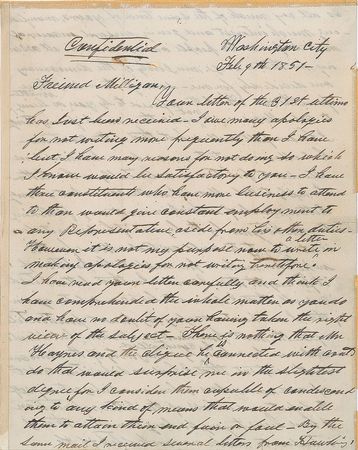 Confidential
Washington City
Feb, 9th 1851-
Friend Milligan,
Your letter of the 31st ultimo
has Just been received - I owe many apologies
for not writing more frequently than I have
but I have many reasons for not doing so which
I know would be satisfactory to you - I have
those constituents who have more business to attend
to than would give constant employment to
any Representative aside from his other duties -
However it is not my purpose now to write a letter on
making apologies for not writing heretofore -
I have read your letter carefully and think I
have comprehended the whole matter as you do
and have no doubt of your having taken the right
view of the subject - There is nothing that Mr
Haynes and the clique connected with
do that would surprise me in the slightest
degree for I consider them capable of condescend
ing to any kind of means that would enable
them to attain their end fair or foul - By the
same mail I received several letters from